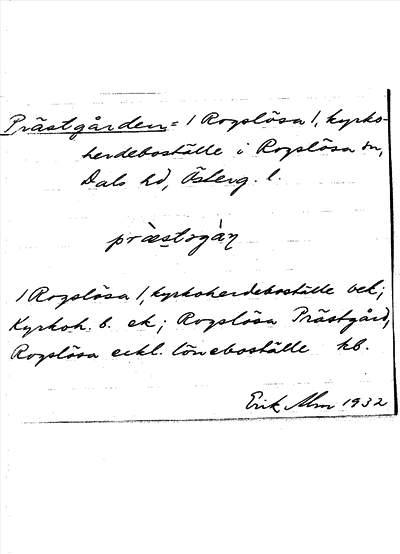 Prästgården = / Rogslösa /, kyrko-
herdeboställe i Rogslösa sn,
Dals hd, Österg. l.
præ̀stɔgàn̥
/ Rogslösa /, kyrkoherdeboställe bek;
Kyrkoh. b. ek; Rogslösa Prästgård,
Rogslösa eckl. löneboställe kb.
Erik Alm 1932